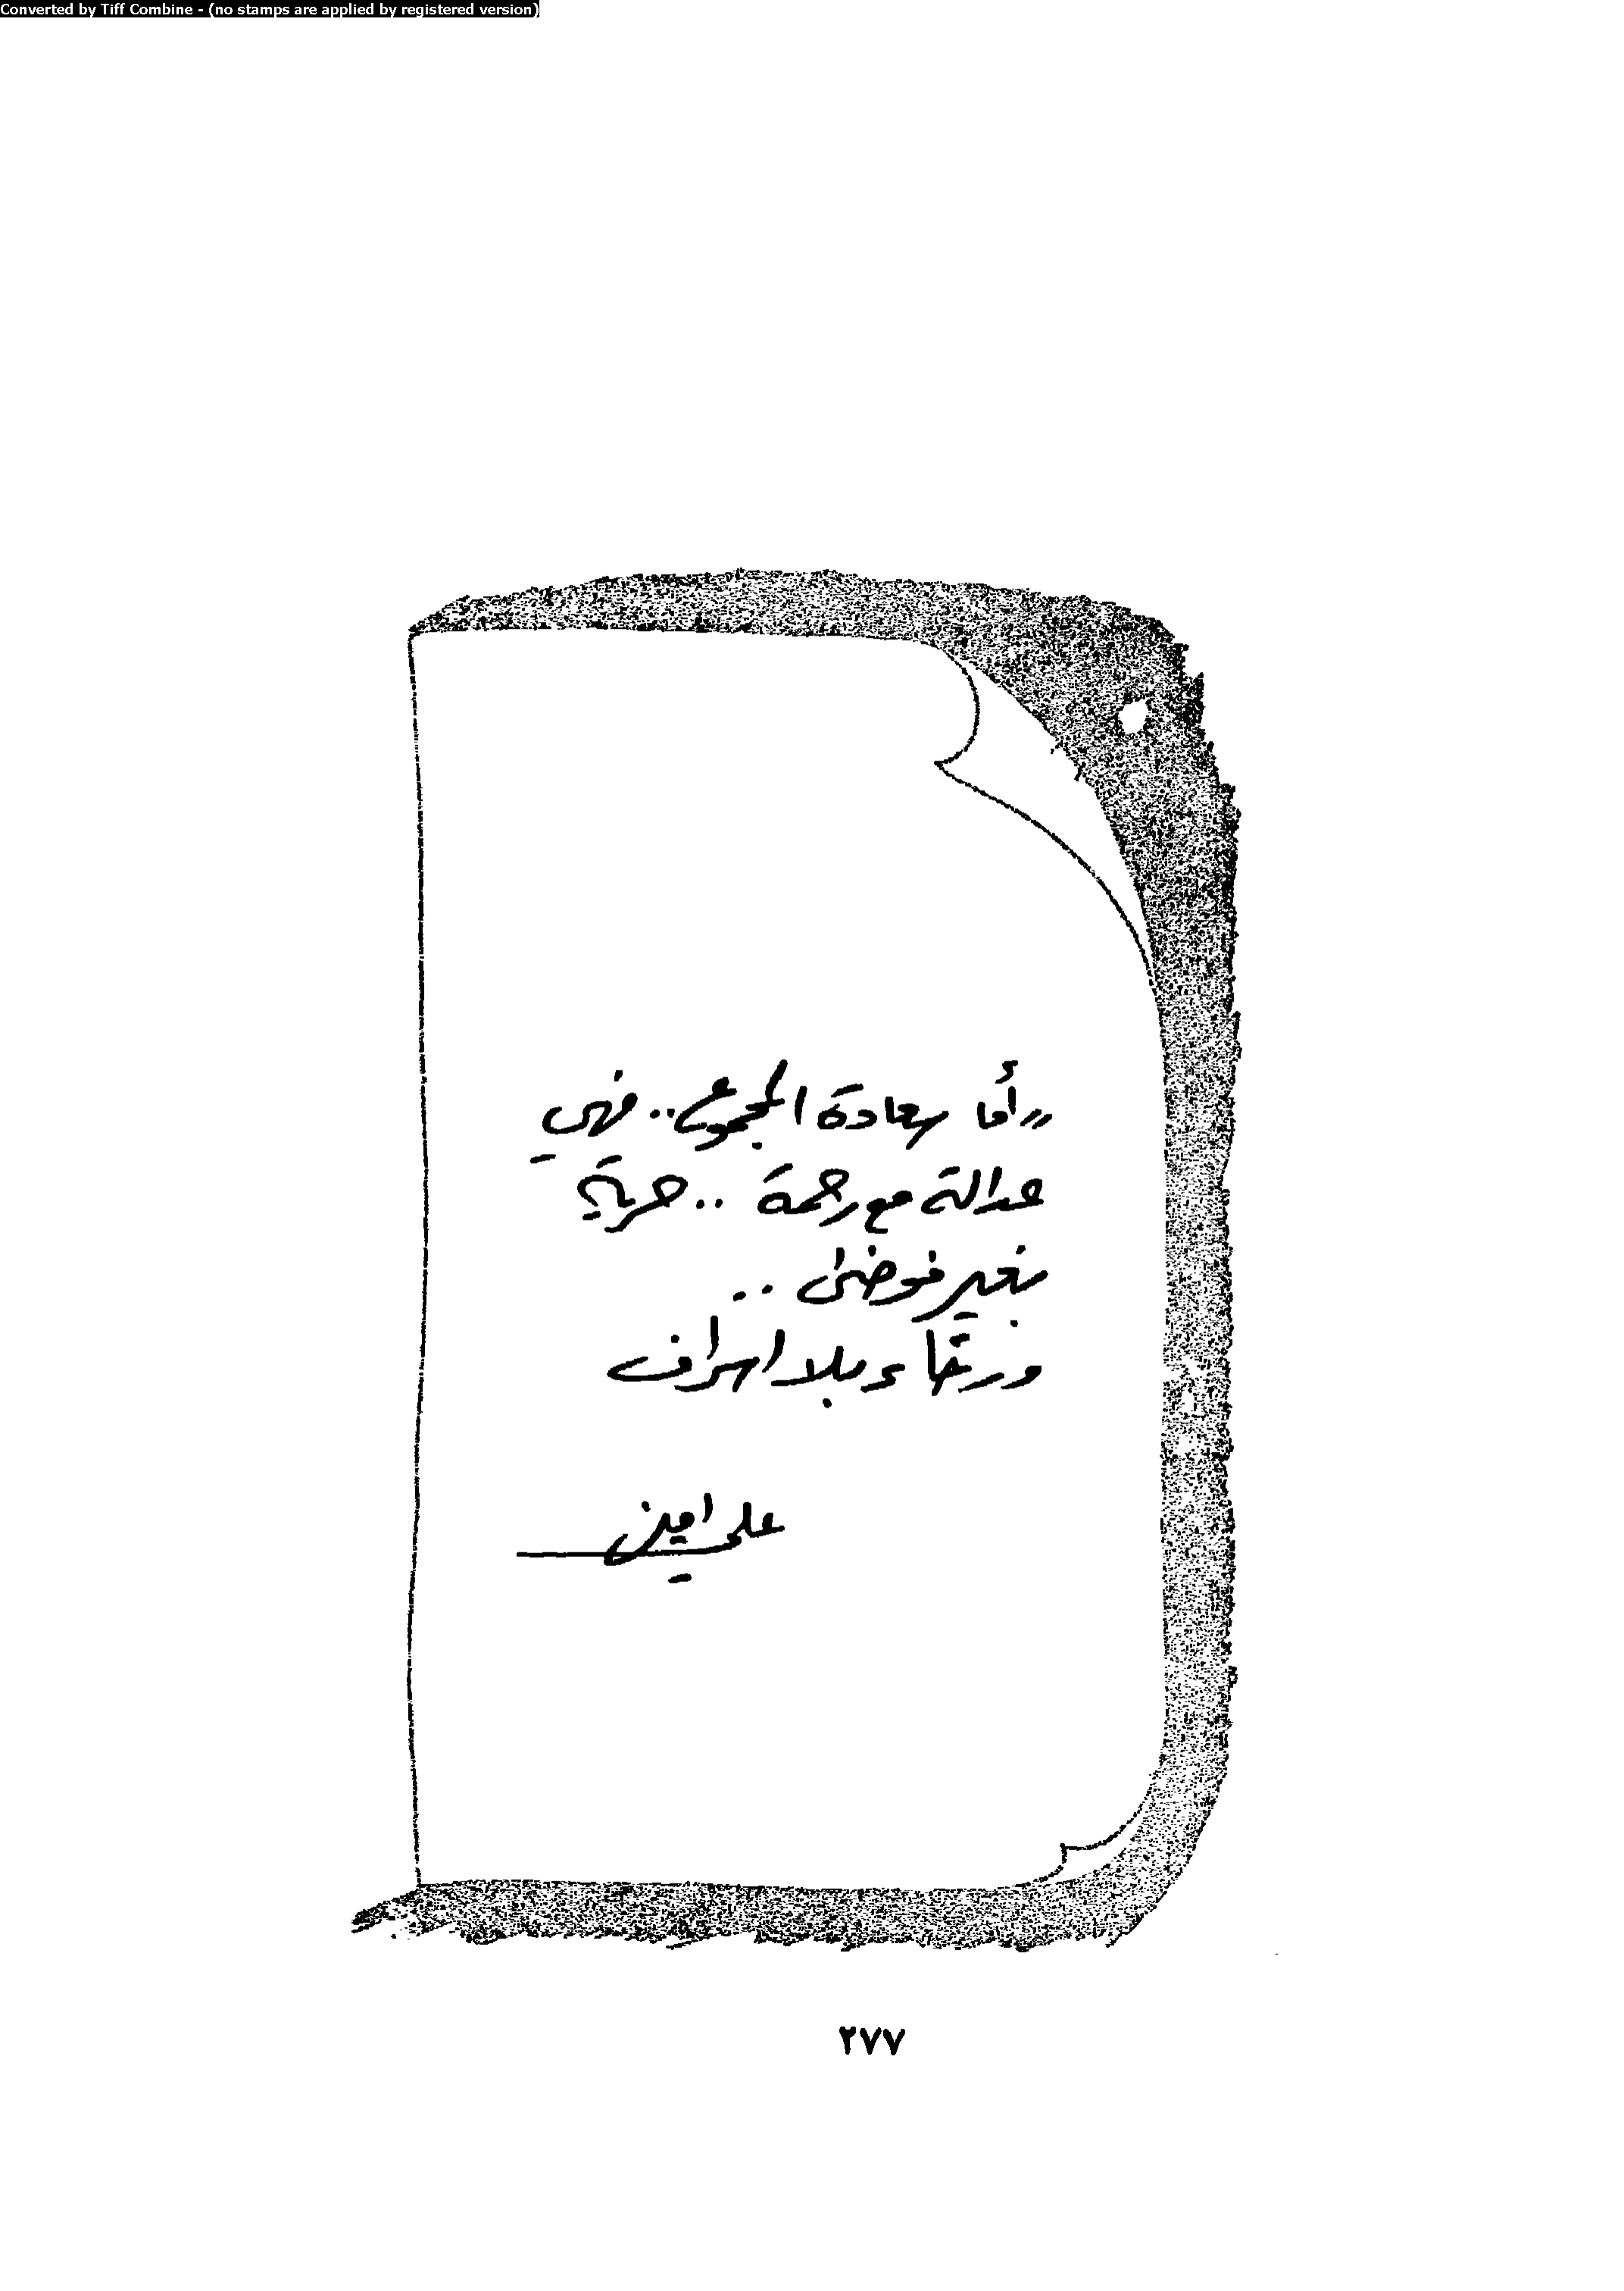 Converted by Tiff Combine - (no stamps are applied by registered version)
"أما سعادة المجموع.. فهي
عدالة مع رحمة .. حرية
بغير فوضى ..
ورخاء بلا اسراف
علي امين
٢٧٧